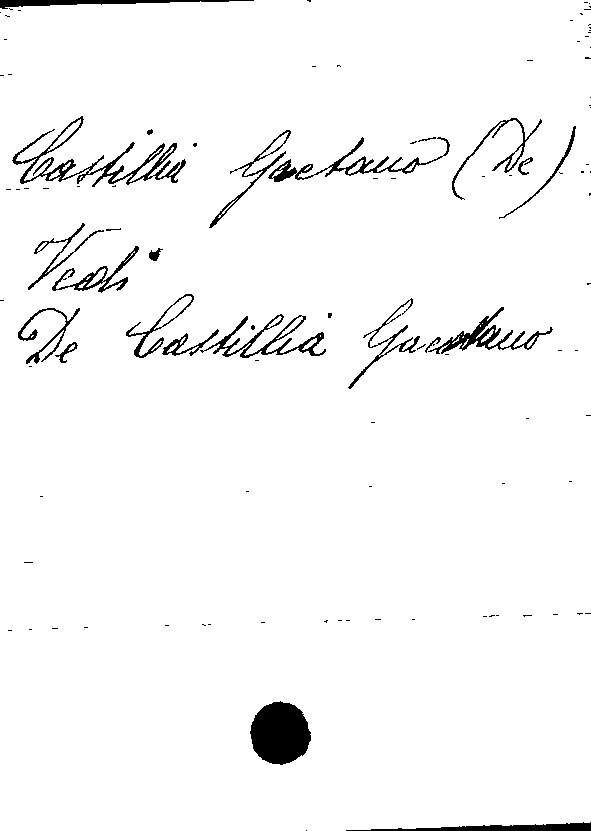 Castillia Gaetano (De)
Vedi
De Castillia Gaetano